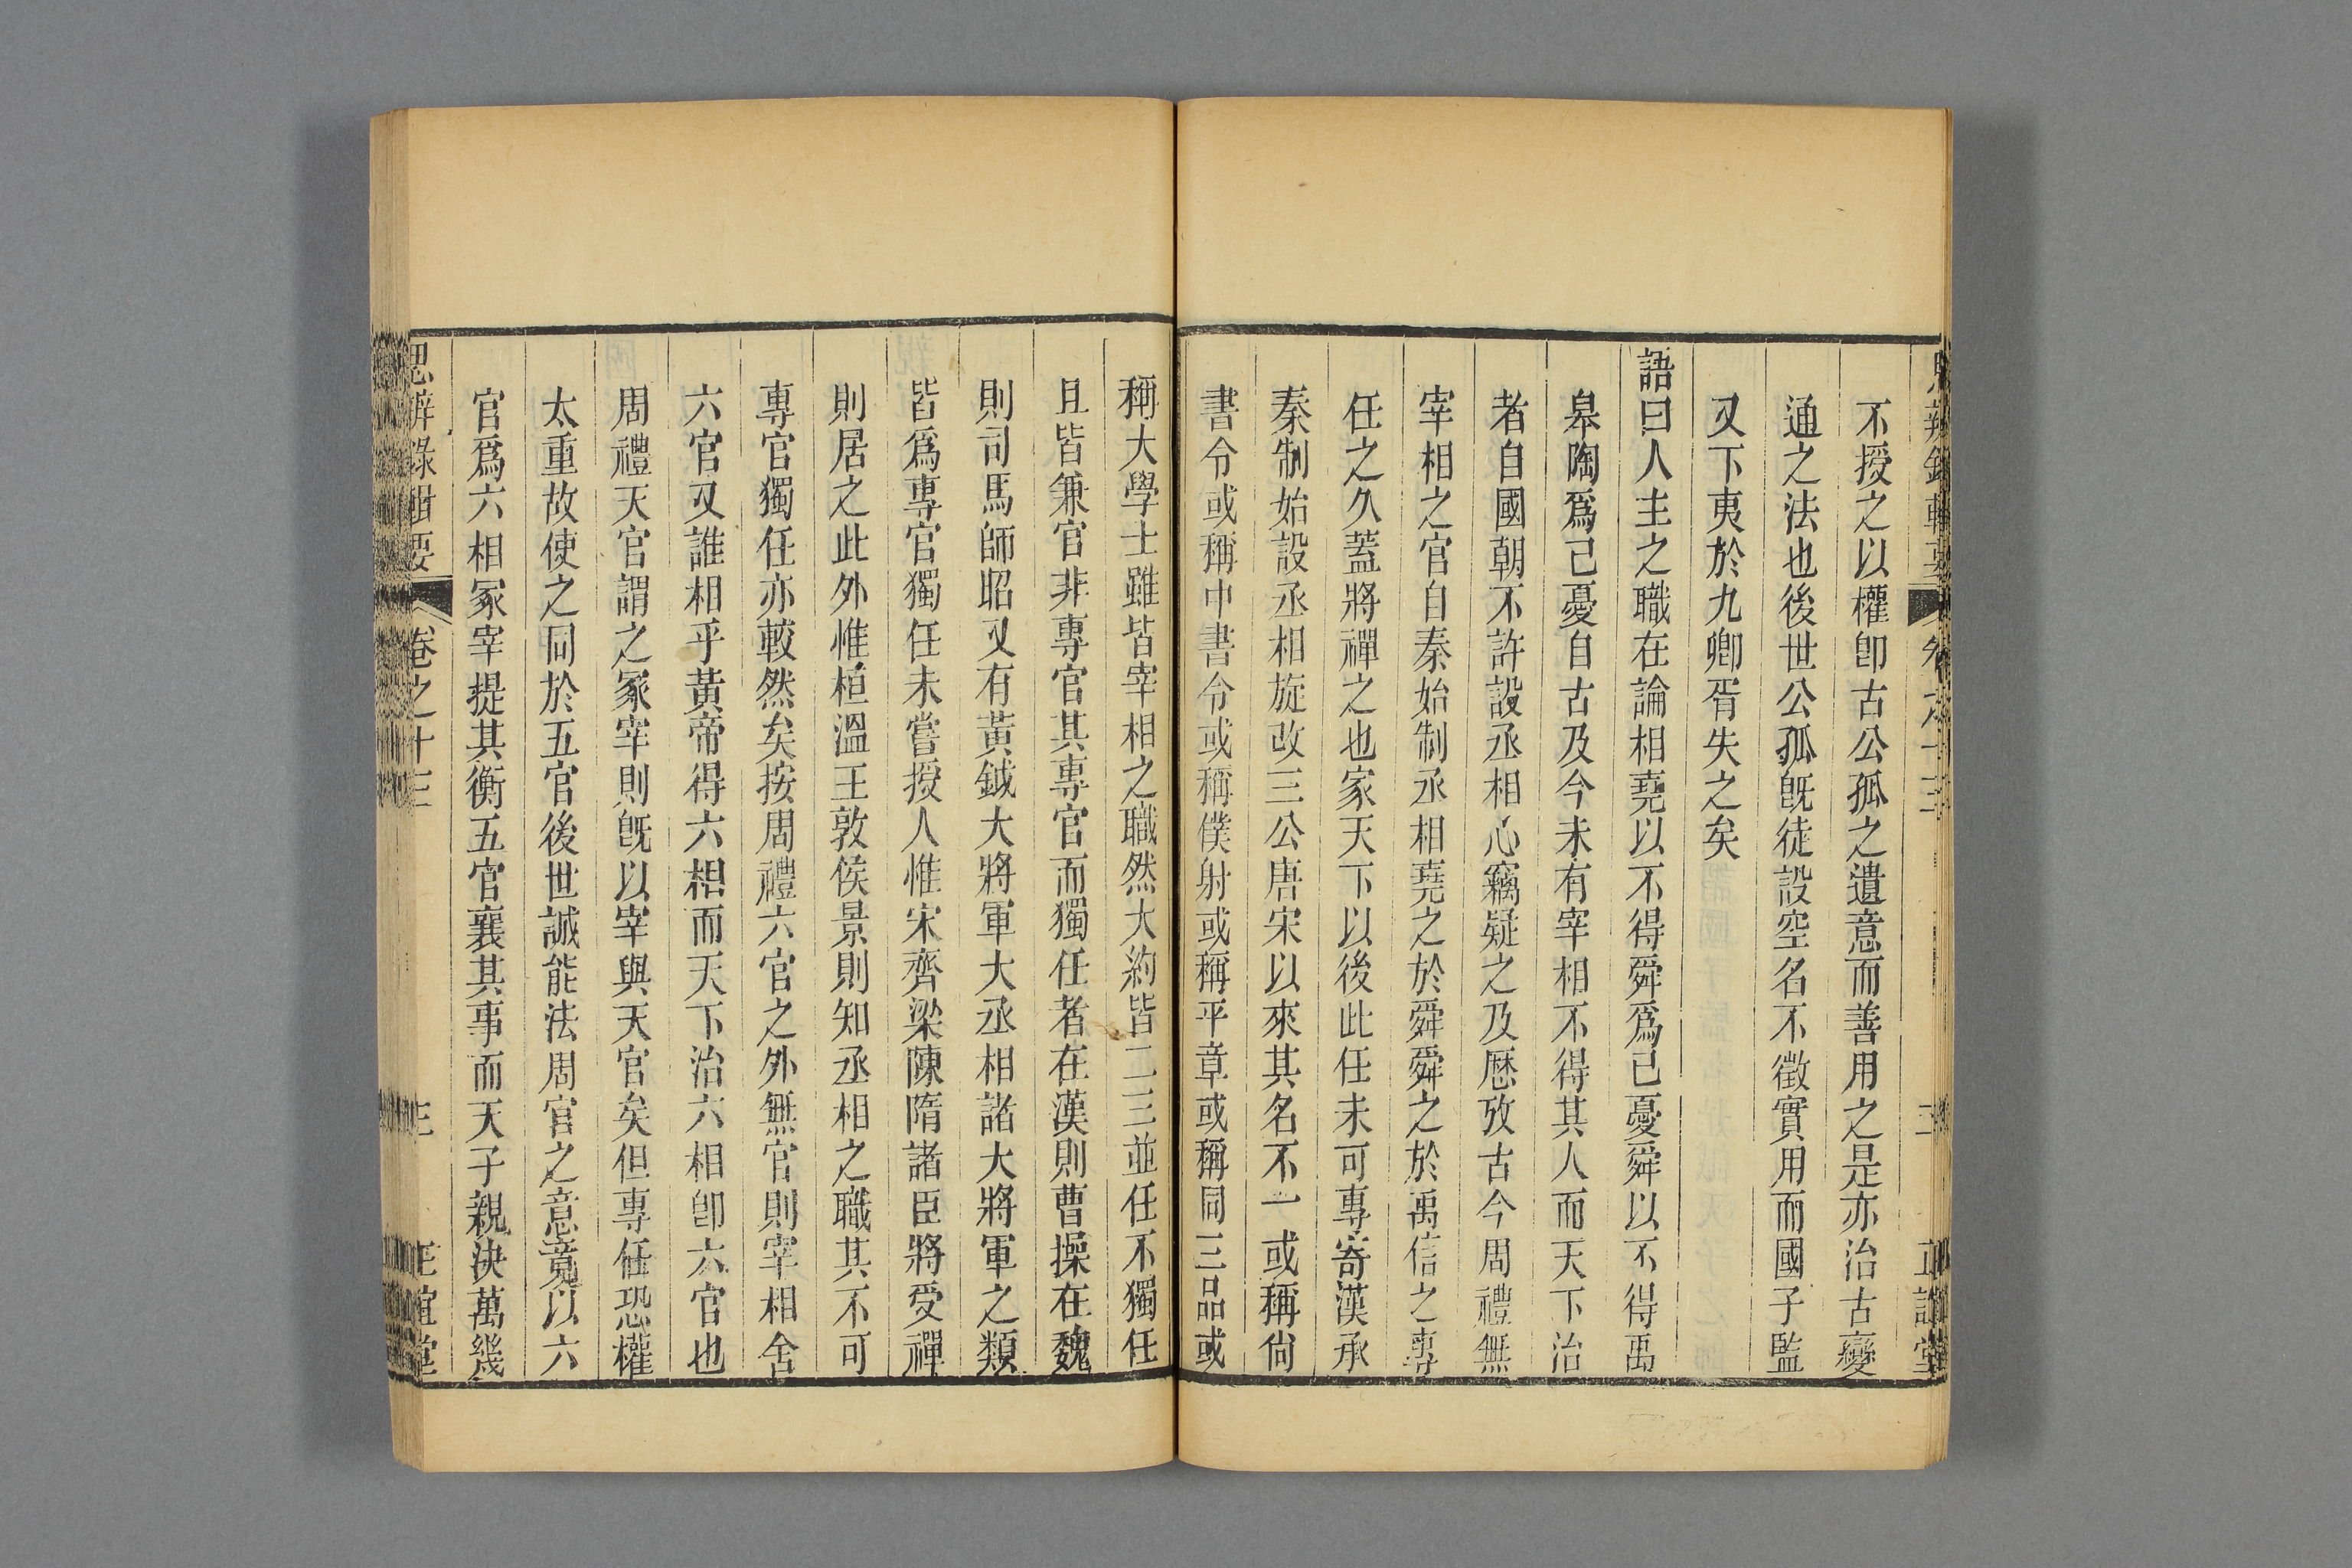 不授之以權卽古公孤之遺意而善用之是亦治古變
通之法也後世公孤旣徒設空名不徵實用而國子監
又下夷於九卿胥失之矣
語曰人主之職在論相堯以不得舜爲已憂舜以不得禹
皋陶爲己憂自古及今未有宰相不得其人而天下治
者自國朝不許設丞相心竊疑之及歷攷古今周禮無
宰相之官自秦始制丞相堯之於舜舜之於禹信之專
任之久蓋將禪之也家天下以後此任未可專寄漢承
秦制始設丞相旋改三公唐宋以來其名不一或稱尙
書令或稱中書令或稱僕射或稱平章或稱同三品或
稱大學士雖皆宰相之職然大約皆二三並任不獨任
且皆兼官非專官其專官而獨任者在漢則曹操在魏
則司馬師昭又有黃鉞大將軍大丞相諸大將軍之類
皆爲專官獨任未嘗授人惟宋齊梁陳隋諸臣將受禪
則居之此外惟桓溫王敦侯景則知丞相之職其不可
專官獨任亦較然矣按周禮六官之外無官則宰相舍
六官又誰相乎黃帝得六相而天下治六相卽六官也
周禮天官謂之冢宰則旣以宰與天官矣但專任恐權
太重故使之同於五官後世誠能法周官之意竟以六
官爲六相冢宰提其衡五官襄其事而天子親決萬幾
思辨錄輯要 卷之十三 三 正誼堂